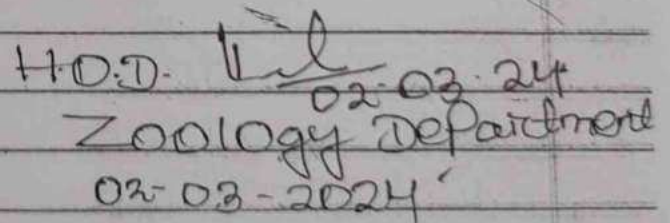 H.O.D.
02-03-24
Zoology Department
02-03-2024